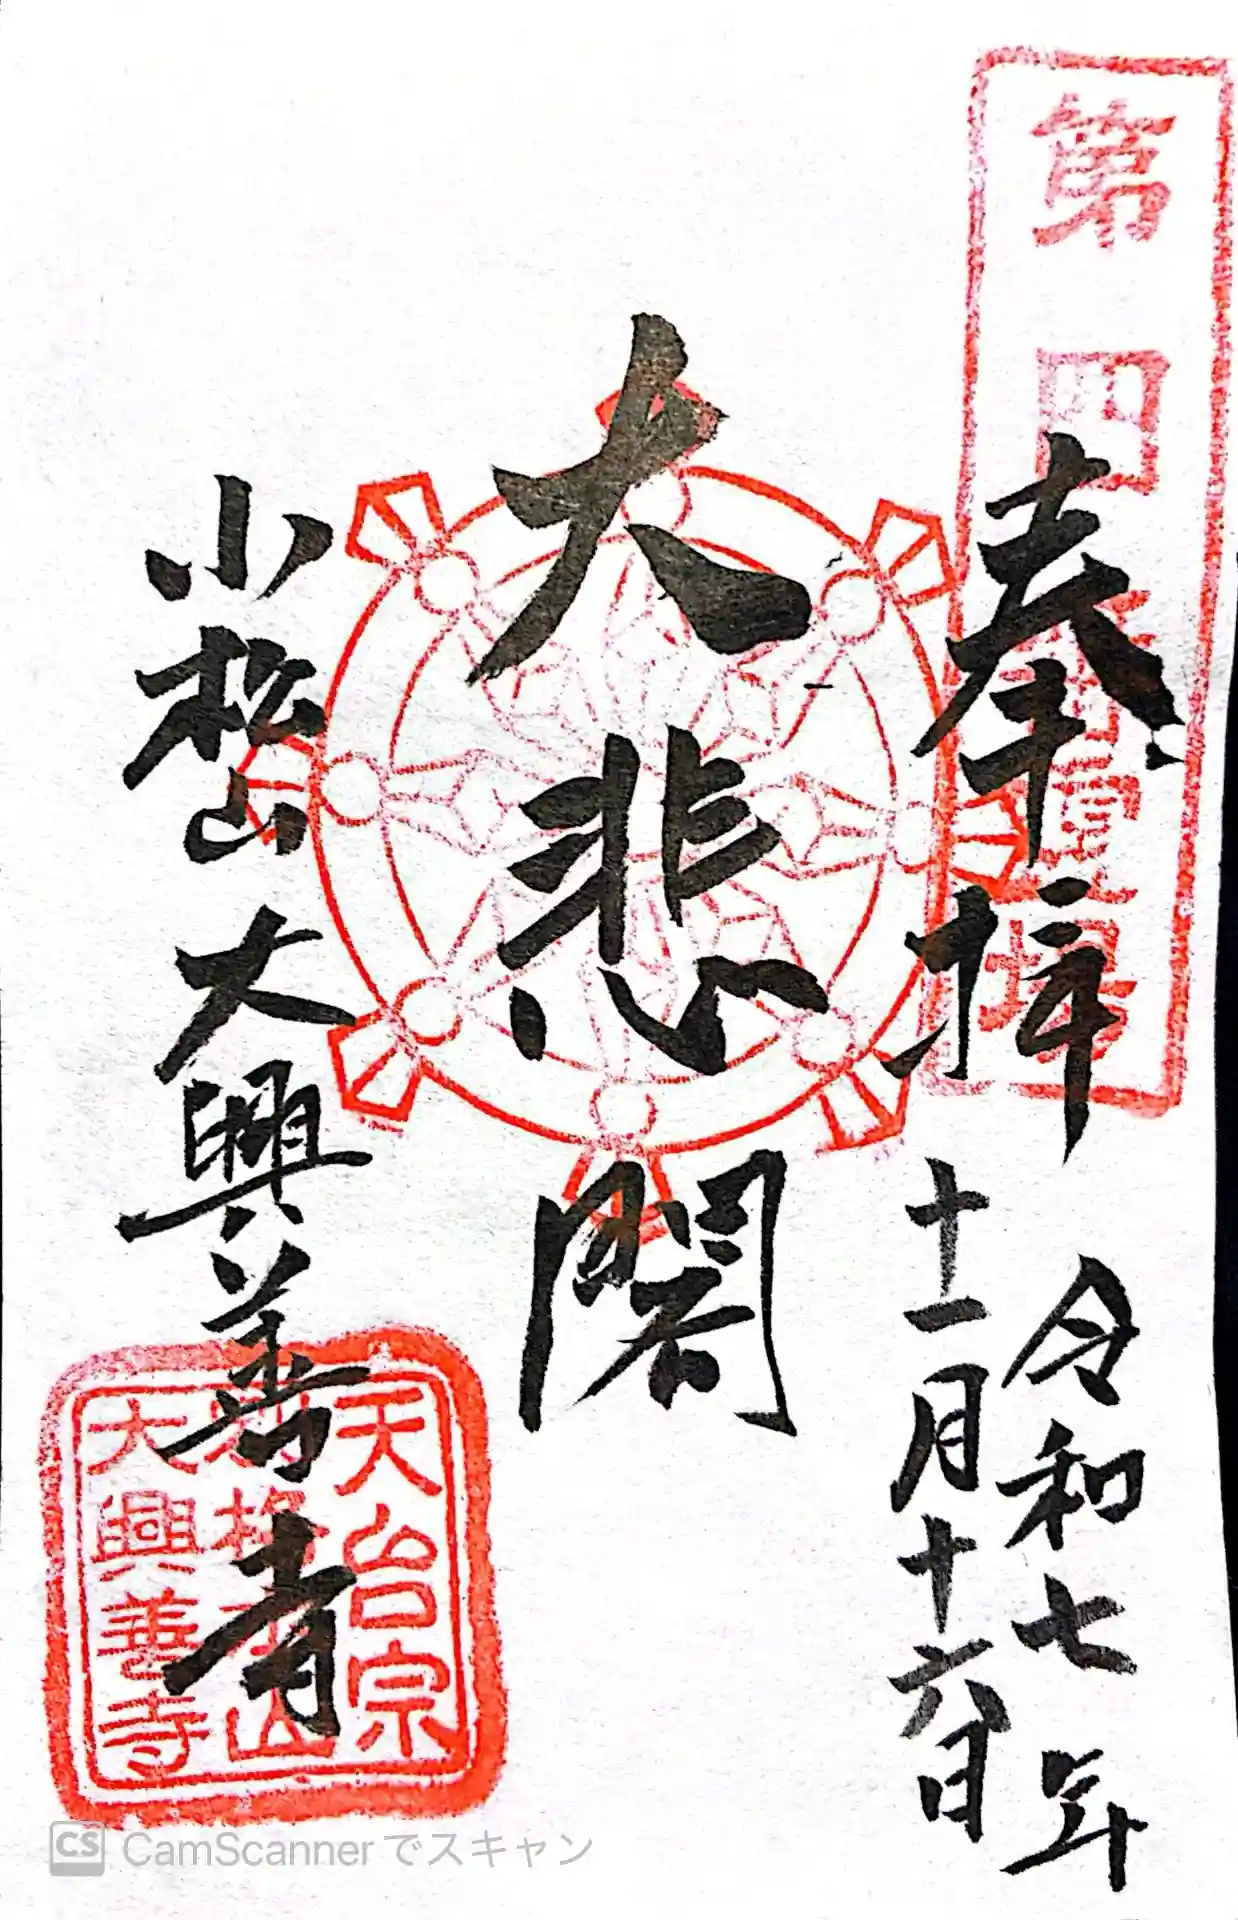 奉拝
令和七年
十一月十六日
大悲閣
小松山大興善寺
天台宗
大興善寺
CS CamScannerでスキャン